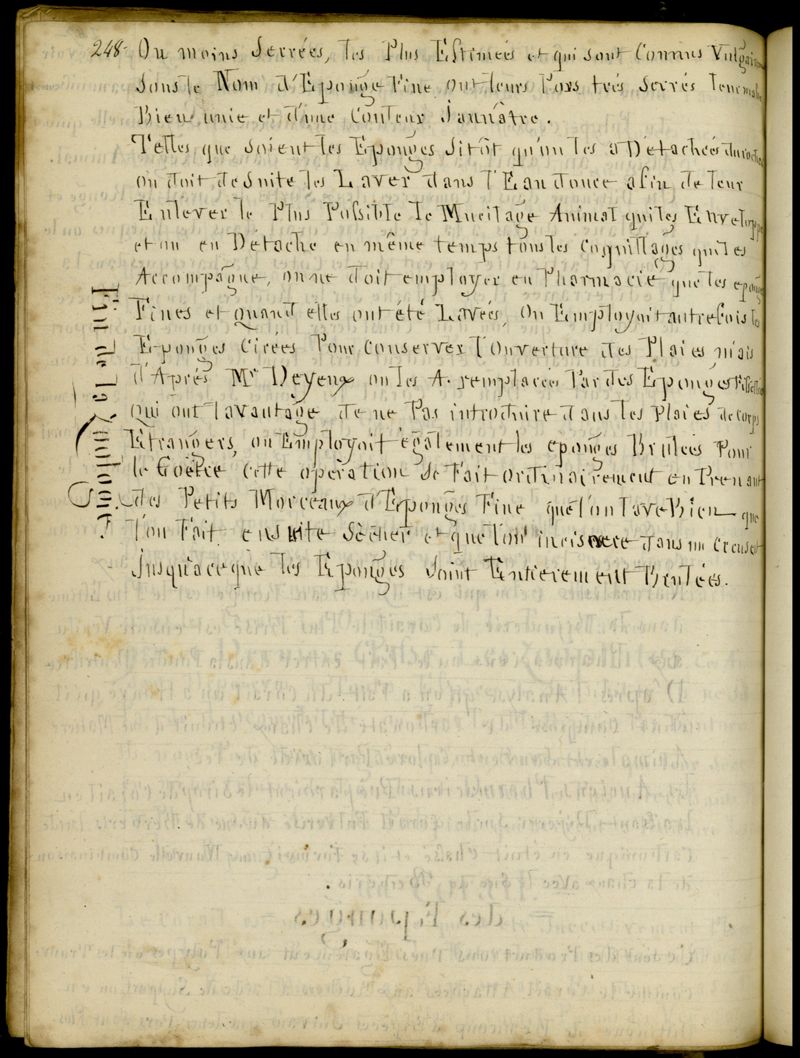 248. Ou moins Serrées, les Plus Estimées et qui sont Connus Vulgairem
Sous le Nom d'Eponge Fine ont leurs Pors très Serrés leur
Bien unie et d'une Couleur Jaunâtre.
Telles que soient les Eponges Sitôt qu'on les a Détachées du roche
on doit de suite les Laver dans l'Eau douce afin de leur
Enlever le Plus Possible le Mucilage Animal qui les Envelope
et on en Détache en même temps tous les Coquillages qui les
Accompagne, on ne doit employer en Pharmacie que les eponges
Fines et quand elles ont été Lavées, On Employait autrefois les
Eponges Cirées Pour Conserver l'Ouverture des Plaies mais
d'Après Mr Deyeux on les A remplacées Par des Eponges Fisselées
qui ont l'avantage de ne Pas introduire dans les Plaies de corps
Etrangers, on Employait également les eponges Brulées Pour
le Goëtre cette opération se Fait ordinairement en Prenant
des Petits Morceaux d'Eponges Fine que l'on lave Bien que
l'on Fait ensuite Sècher et que l'on incinere dans un Creuset
Jusqu'a ce que les Eponges Soint Entierement Brulées.